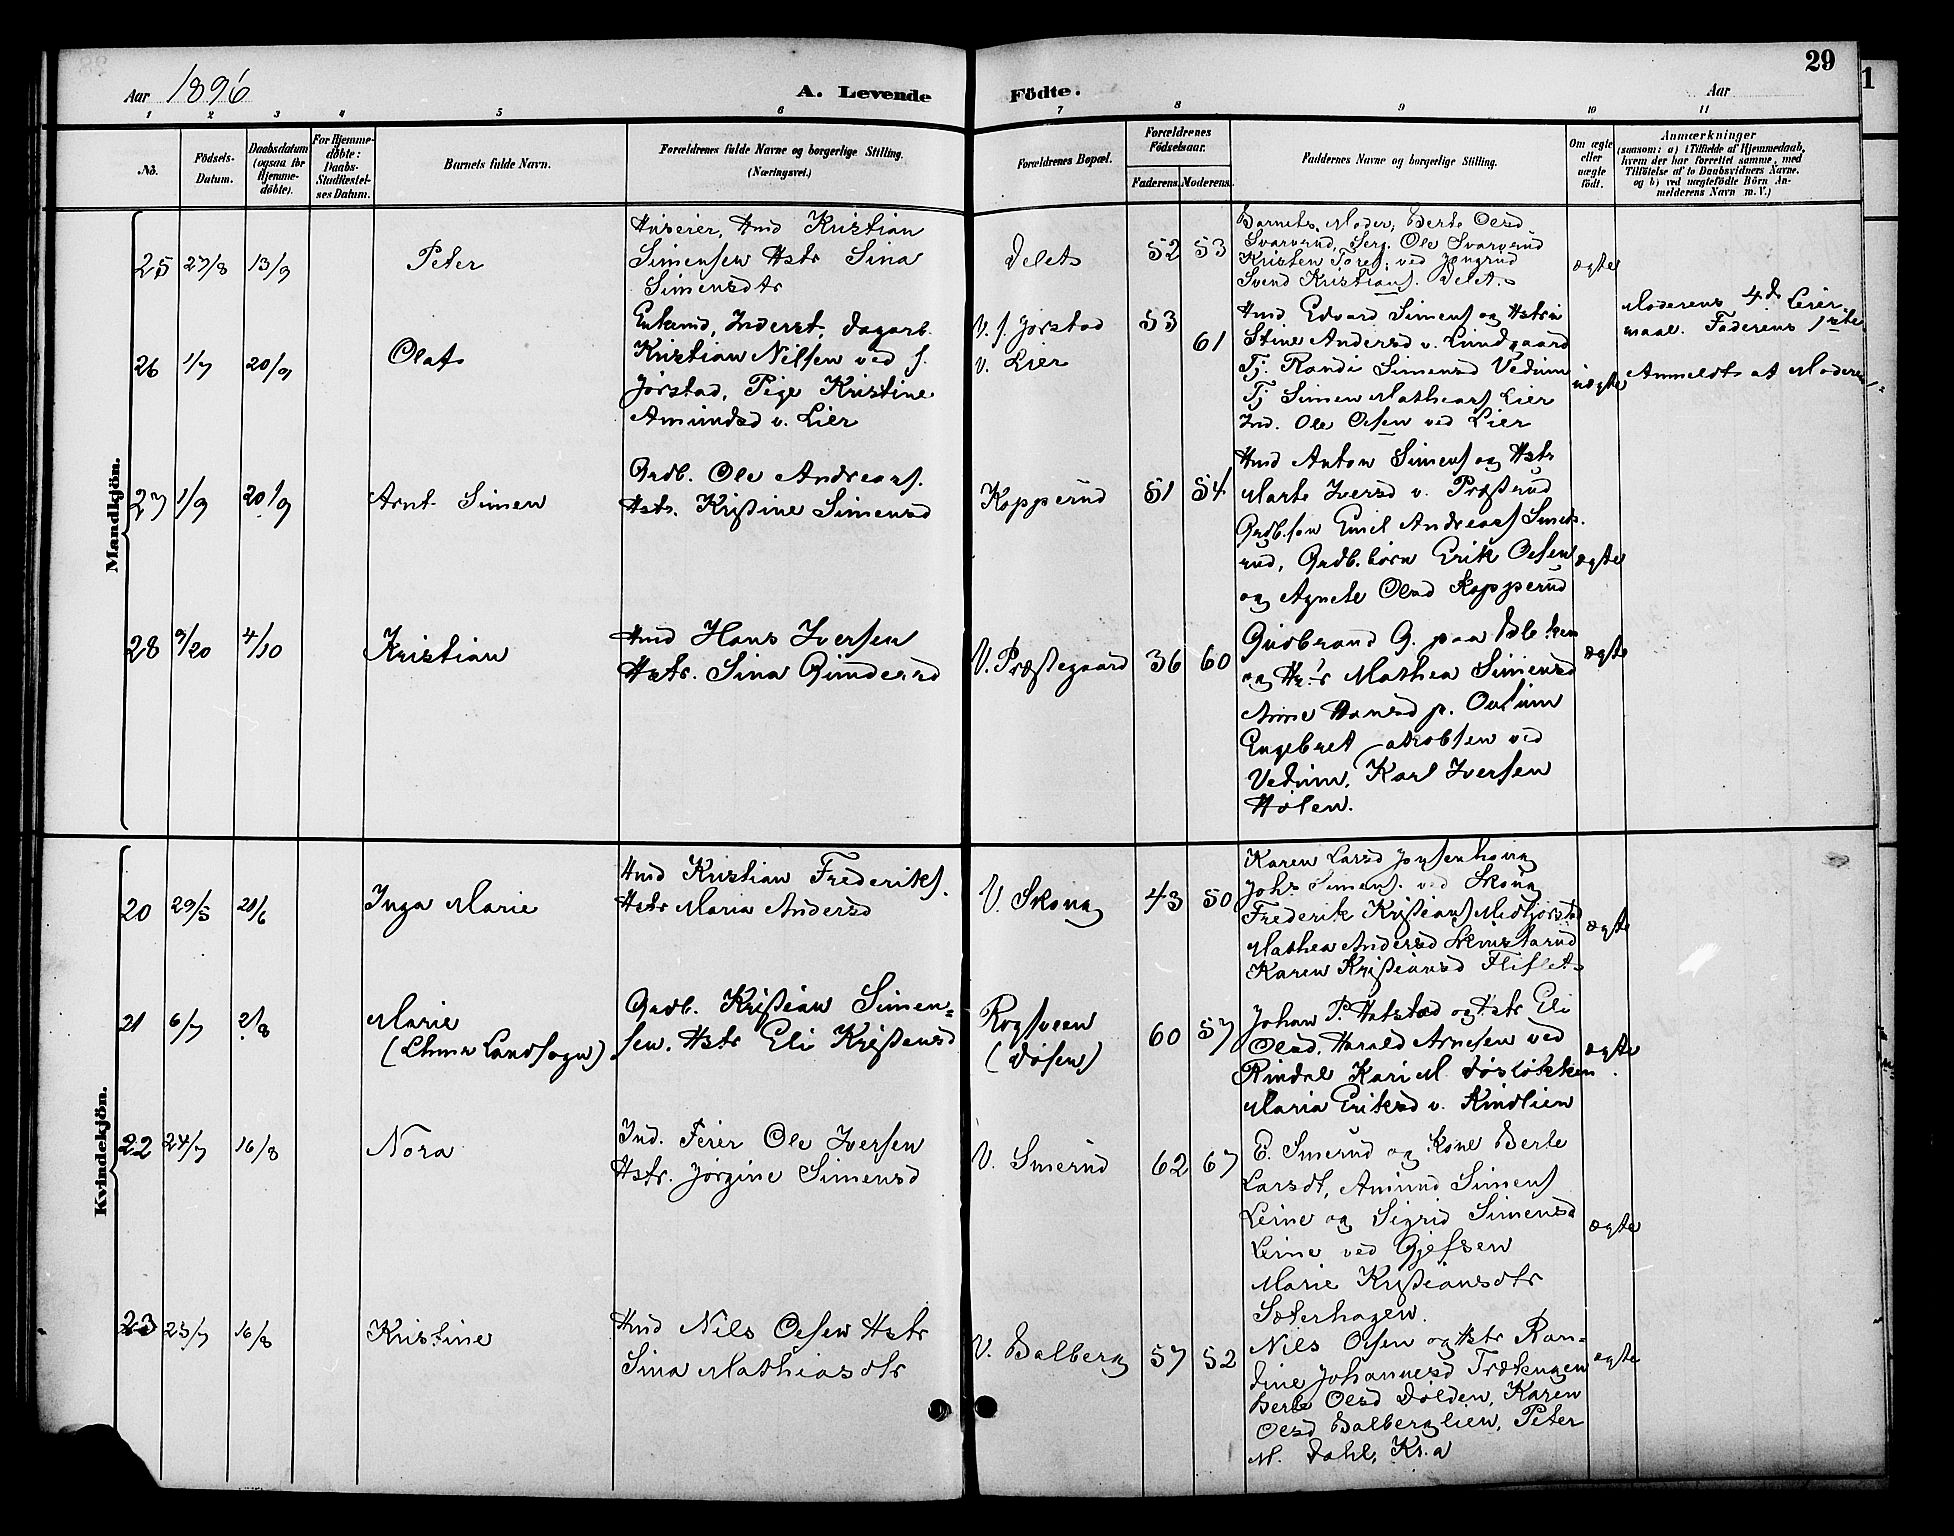 29
1
Aar 1896
A. Levende Födte.
Aar
1 2 3 4 5 6 7 8 9 10 11
No.
Födsels-Datum.
Daabsdatum (ogsaa for Hjemme-döbte).
For Hjemme-döbte: Daabs-Stadfæstel-ses Datum.
Barnets fulde Navn.
Forældrenes fulde Navne og borgerlige Stilling.
(Næringsvei.)
Forældrenes Bopæl.
Forældrenes Födselsaar.
Faderens. Moderens.
Faddernes Navne og borgerlige Stilling.
Om ægte eller uægte födt.
Anmærkninger
(saasom: a) i Tilfælde af Hjemmedaab,
hvem der har forrettet samme, med
Tilföielse af to Daabsvidners Navne,
og b) ved uægtefödte Börn An-
melderens Navn m. V.)
Mandkjön.
25 27/8 13/9 Peter
Huseier, Hmd Kristian
Simensen Hstr Sina
Simensdtr
Delet 52 53
Barnets Moder, Berte Olesd
Svarverud, Serg. Ole Svarverud
Kristen Toref. ved Jongrud
Svend Kristians. Delet.
ægte
26 1/7 20/9 Olaf
Enkmd, Inderst, dagarb.
Kristian Nilsen ved s.
Jørstad, Pige Kristine
Amundsd v. Lier
V. s. Jørstad
v. Lier
53 61
Hmd Edvard Simens og Hstru
Stine Andersd v. Lundgaard
Tj. Randi Simensd Vedum
Tj Simen Mathears Lier
Ind. Ole Olsen ved Lier
uægte
Moderens 4d Leier
maal. Faderens 1ste
Anmeldt af Moderen
27 1/9 20/9 Arnt Simen
Grdb. Ole Andreas.
Hstr. Kristine Simensd
Kopperud 51 54
Hmd Anton Simens og Hstr
Marte Iversd v. Præsterud
Grdb.søn Emil Andreas Smeds-
rud, Grdb.børn Erik Olsen
og Agnete Olsd Kopperud
ægte
28 9/20 4/10 Kristian
Hmd Hans Iversen
Hstr. Sina Gundersd
V. Præstegaard 36 60
Gudbrand G. paa Bleken
og Hstr Mathea Simensd
Anne Hansd p. Ovlum
Engebret Jakobsen ved
Vedum, Karl Iversen
Holen.
ægte
Kvindekjön.
20 29/5 21/6 Inga Marie
Hmd Kristian Frederiks.
Hstr Maria Andersd
V. Skoug 43 50
Karen Larsd
Johs Simens. ved Skoug
Frederik Kristians Midtjørstad
Mathea Andersd
Karen Kristiansd Fliflet
ægte
21 6/7 2/8 Marie
Grdb. Kristian Simen-
sen. Hstr Eli Kristensd
Rogsveen
(Døsen)
60 57
Johan P. Hatstad og Hstr Eli
Olesd, Harald Arnesen ved
Rindal Kari M. Døsløkken
Maria Eriksd v. Kindlien
ægte
22 24/7 16/8 Nora
Ind. Feier Ole Iversen
Hstr. Jørgine Simensd
V. Smerud 62 67
E. Smerud og Kone Berte
Larsdt, Amund Simens
Leine og Sigrid Simensd
Leine ved Gjefsen
Marie Kristiansdtr
Sæterhagen.
ægte
23 23/7 16/8 Kristine
Hmd Nils Olsen Hstr
Sina Mathiasdtr
V. Balberg 57 52
Nils Olsen og Hstr Ran-
dine Johannesd Trætengen
Berte Olesd Dølden, Karen
Olesd Balberglien, Peter
M. Dahl, Kr.a
ægte